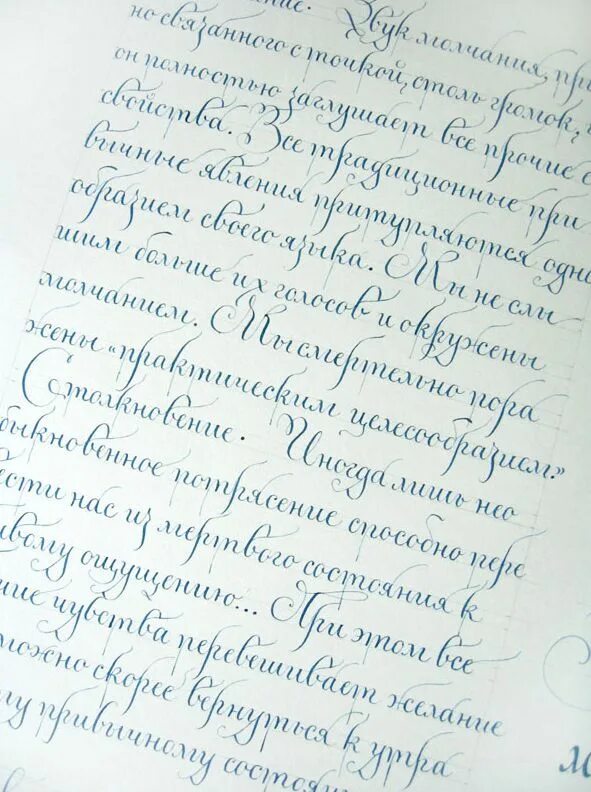 ние. Звук молчания, при
но связанного с точкой, столь громок,
он полностью заглушает все прочие с
свойства. Все традиционные при
вычные явления притупляются одно
образием своего языка. Мы не слы
шим больше их голосов и окружены
молчанием. Мы смертельно пора
жены "практическим целесообразием."
Столкновение. Иногда лишь нео
быкновенное потрясение способно пере
ести нас из мертвого состояния к
ивому ощущению... При этом все
ние чувства перевешивает желание
можно скорее вернуться к утра
му привычному состояни
м